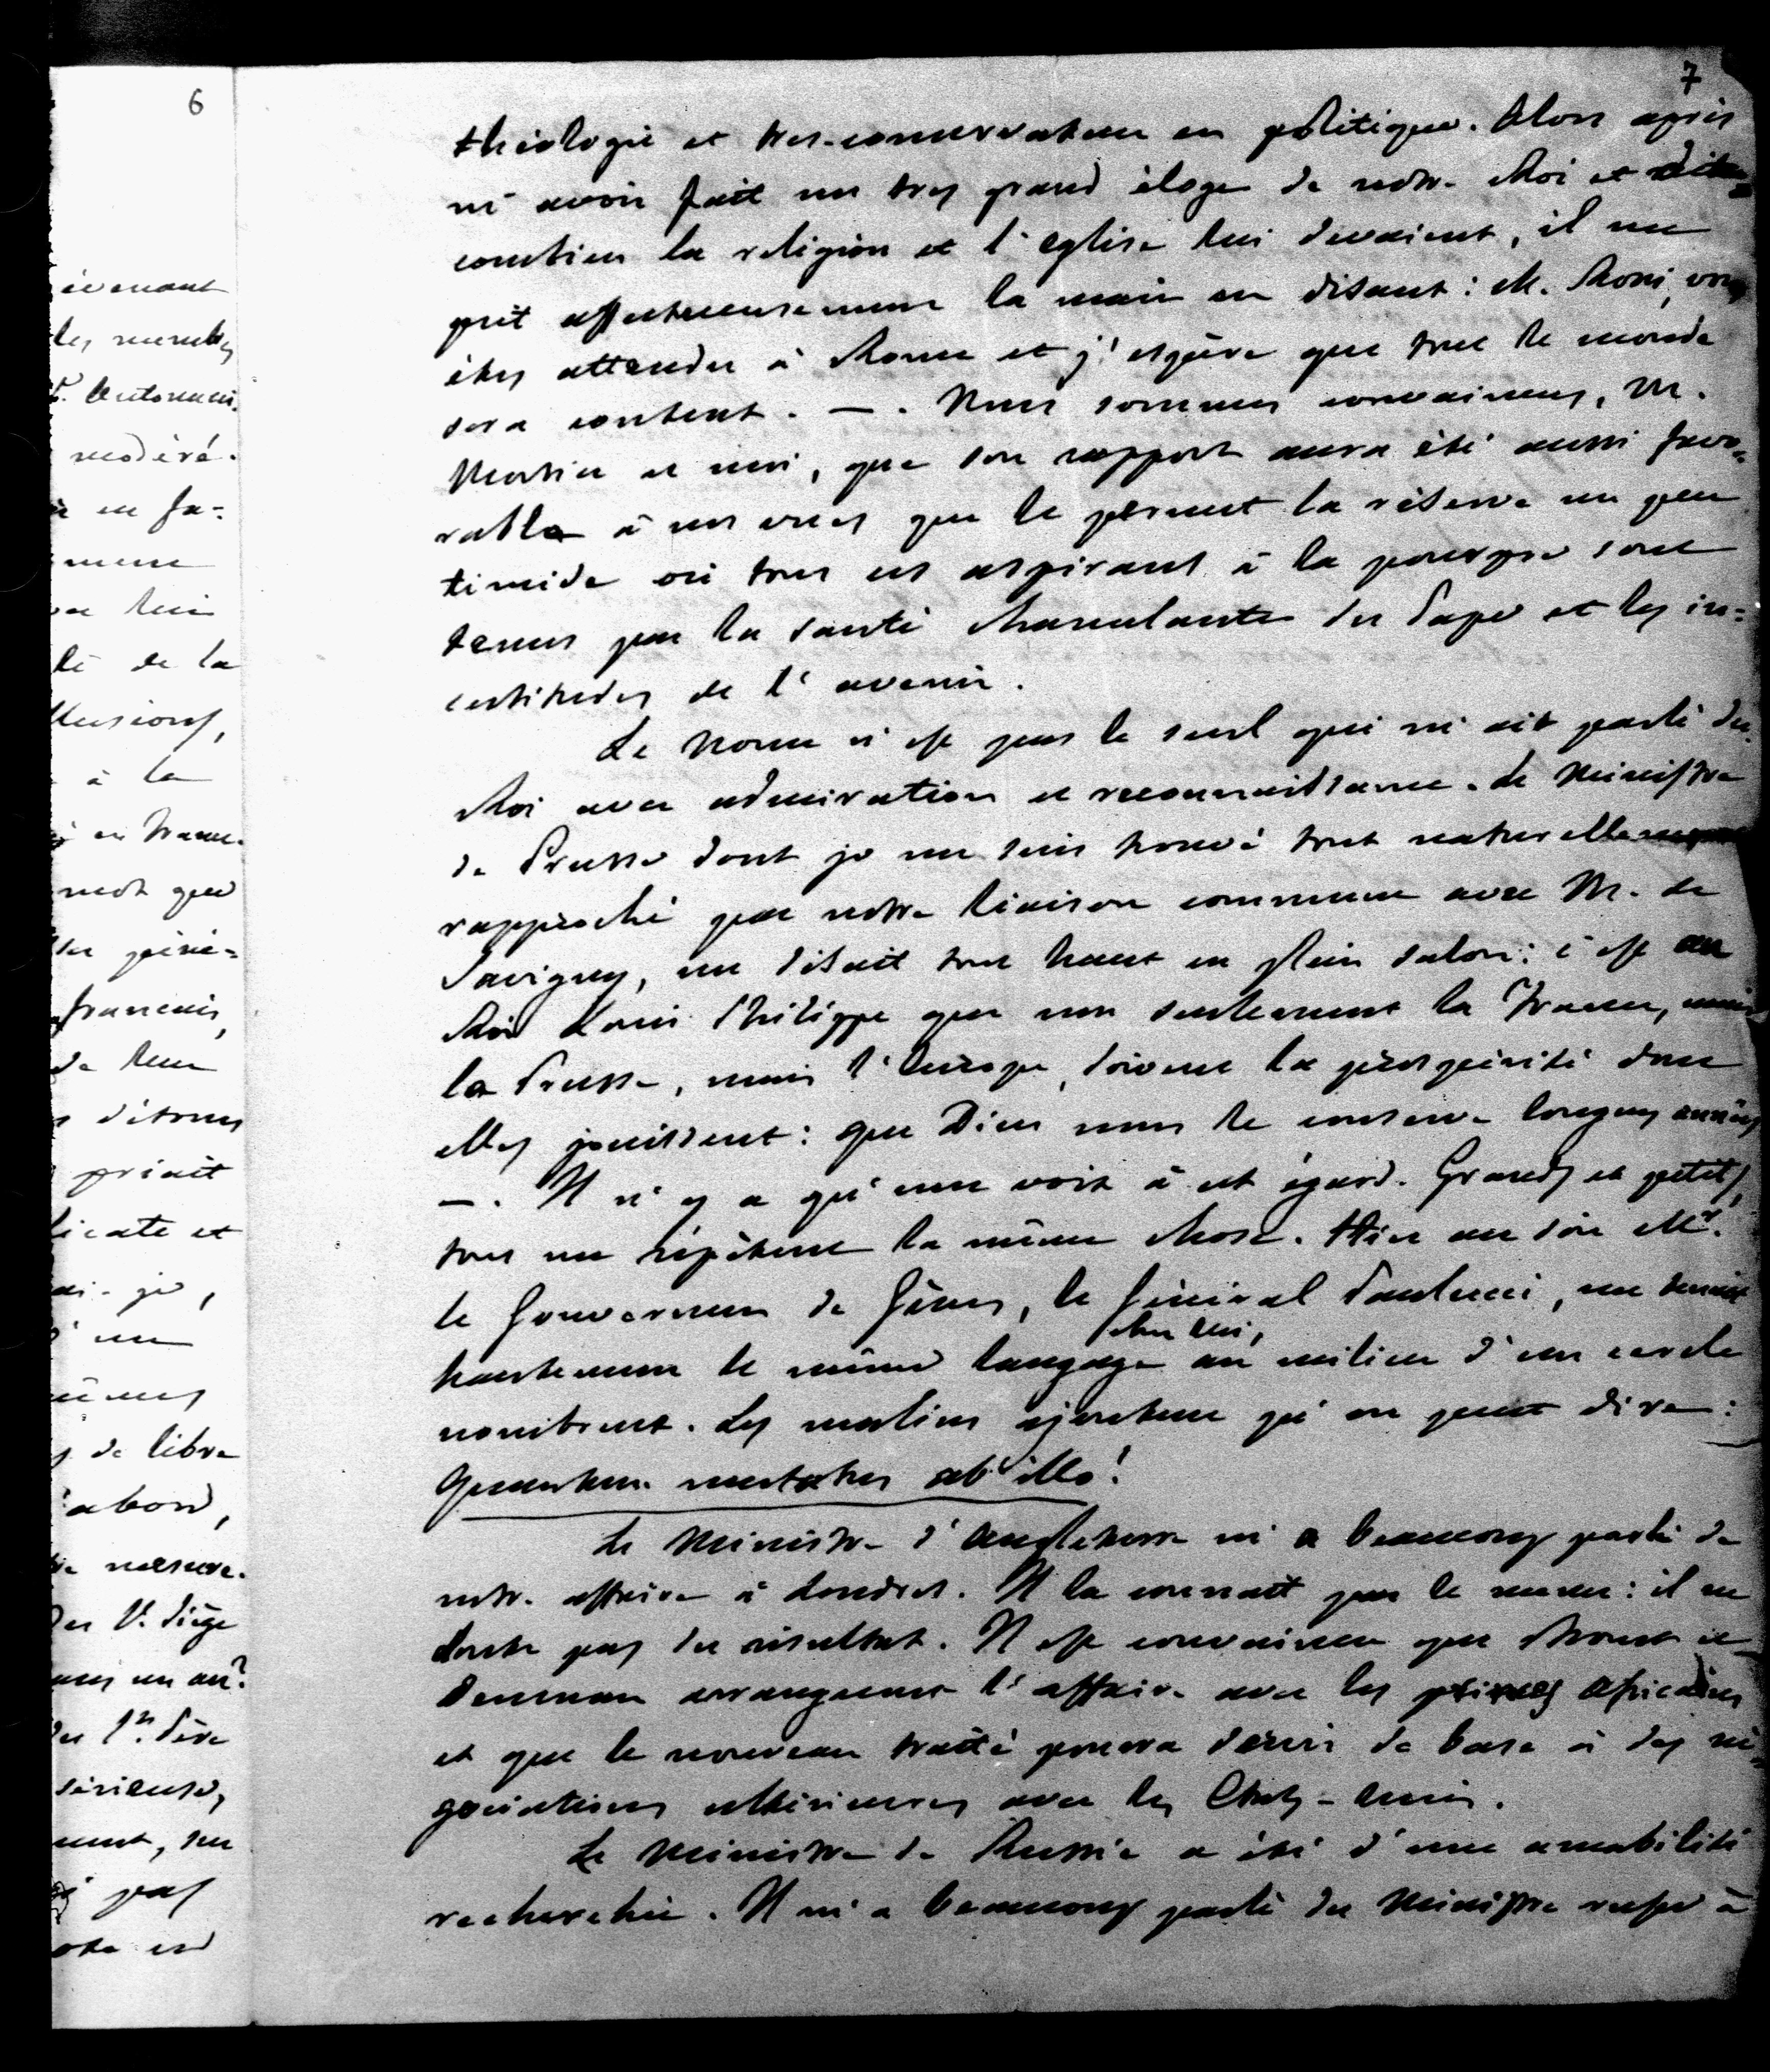 6
evenant
les membres
modéré.
en fa-
lui
té de la
lusions,
à la
en France.
mot que
des géné-
français,
de leur
détours
priait
licate et
ai-je,
d'un
mes
de libre
abord,
mesure.
du St. Siège
un an?
du St. Père
sérieuse,
ment, sur
pas
7
théologie et très-conservateur en politique. Alors après
m'avoir fait un très grand éloge de notre Roi et dit
combien la religion et l'Eglise lui devaient, il me
prit affectueusement la main en disant: M. Rossi, vous
êtes attendu à Rome et j'espère que tout le monde
sera content. —. Nous sommes convaincus, M.
Mortier et moi, que son rapport aura été aussi favo-
rable à nos vues que le permet la réserve un peu
timide où tous ces aspirants à la pourpre sont
tenus par la santé chancelante du Pape et les in-
certitudes de l'avenir.
Le Nonce n'est pas le seul qui m'ait parlé du
Roi avec admiration et reconnaissance. Le Ministre
de Prusse dont je me suis trouvé tout naturellement
rapproché par notre liaison commune avec M. de
Savigny, me disait tout haut en plein salon: c'est au
Roi Louis Philippe que non seulement la France, mais
la Prusse, mais l'Europe, doivent la prospérité dont
elles jouissent: que Dieu nous le conserve longues années
—. Il n'y a qu'une voix à cet égard. Grands et petits,
tous me répètent la même chose. Hier au soir Mr.
le Gouverneur de Gênes, le Général Paulucci, me tenait
chez lui,
hautement le même langage au milieu d'un cercle
nombreux. Les malins ajoutent qu'on peut dire:
Quantum mutatus ab illo!
Le Ministre d'Angleterre m'a beaucoup parlé de
notre affaire à Londres. Il la connaît par le menu: il ne
doute pas du résultat. Il est convaincu que Trout et
Denman arrangeront l'affaire avec les princes africains
et que le nouveau traité pourra servir de base à des né-
gociations ultérieures avec les Etats-Unis.
Le Ministre de Russie a été d'une amabilité
recherchée. Il m'a beaucoup parlé du Ministre russe à